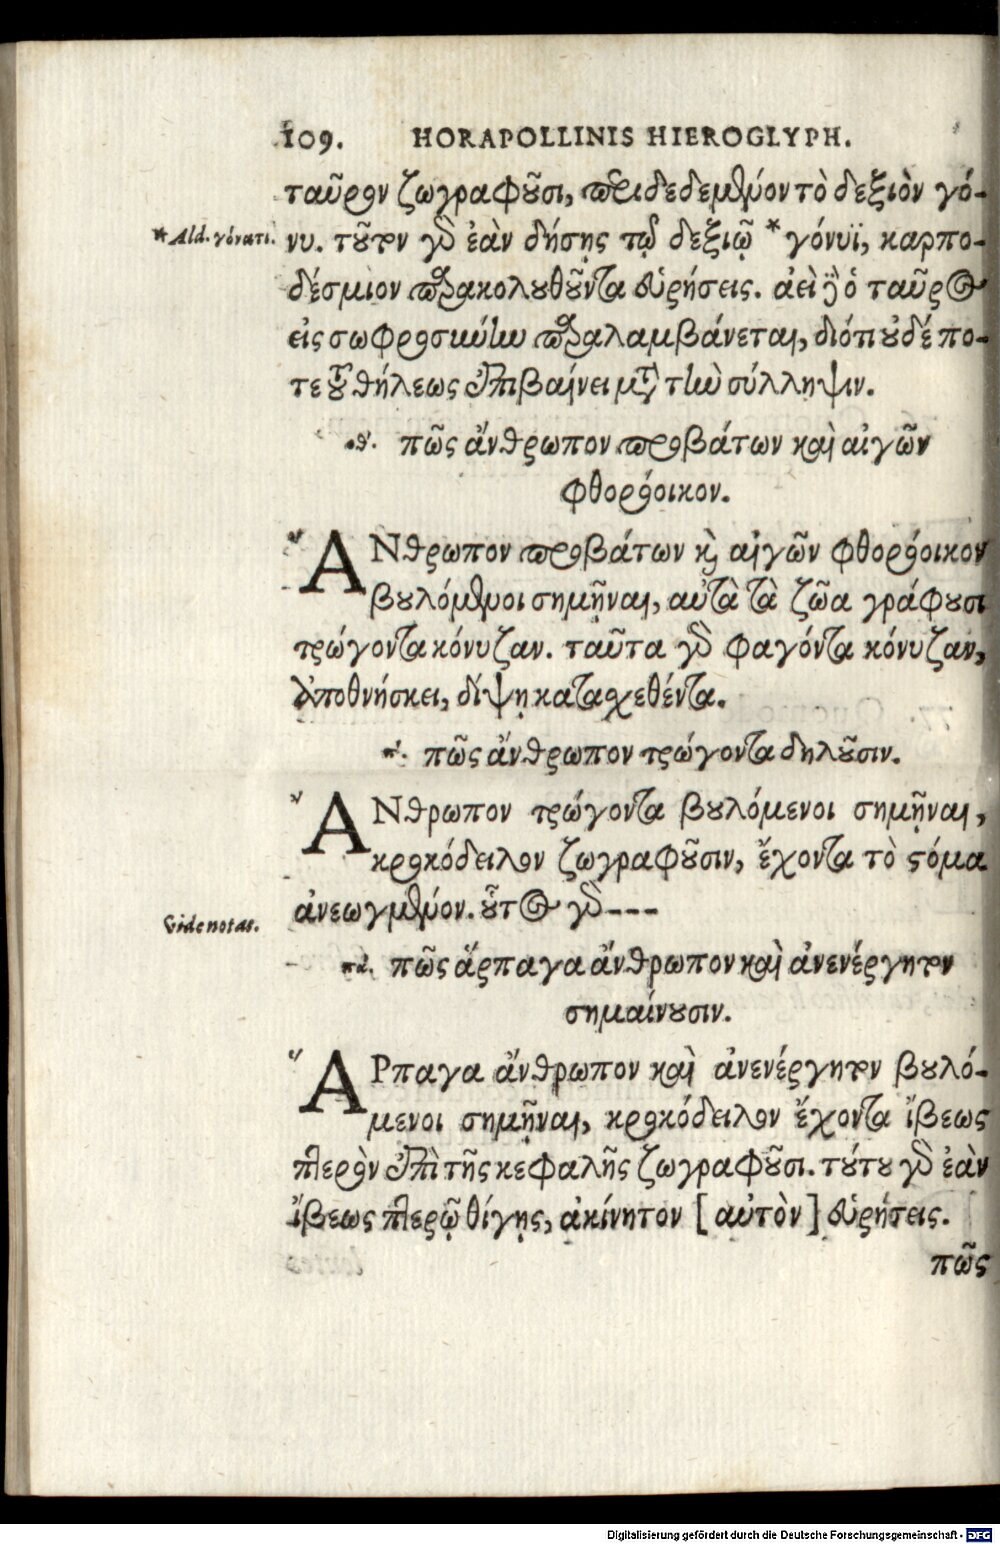 109. HORAPOLLINIS HIEROGLYPH.
ταῦρον ζωγραφοῦσι, περιδεδεμένον τὸ δεξιὸν γό-
* Ald. γόνατι.
νυ. τοῦτον γὰρ ἐὰν δήσῃς τῷ δεξιῷ * γόνυϊ, καρπο-
δέσμιον παρακολουθοῦντα εὑρήσεις. ἀεὶ δὲ ὁ ταῦρος
εἰς σωφροσύνην παραλαμβάνεται, διότι οὐδέ πο-
τε τοῦ θήλεως ἐπιβαίνει μετὰ τὴν σύλληψιν.
οθ'. πῶς ἄνθρωπον προβάτων καὶ αἰγῶν
φθορόοικον.
ἌΝθρωπον προβάτων καὶ αἰγῶν φθορόοικον
βουλόμενοι σημῆναι, αὐτὰ τὰ ζῶα γράφουσι
τρώγοντα κόνυζαν. ταῦτα γὰρ φαγόντα κόνυζαν,
ἀποθνήσκει, δίψῃ καταχεθέντα.
π'. πῶς ἄνθρωπον τρώγοντα δηλοῦσιν.
ἌΝθρωπον τρώγοντα βουλόμενοι σημῆναι,
κροκόδειλον ζωγραφοῦσιν, ἔχοντα τὸ στόμα
ἀνεωγμένον. οὗτος γὰρ - - -
Vide notas.
πα'. πῶς ἅρπαγα ἄνθρωπον καὶ ἀνενέργητον
σημαίνουσιν.
ἍΡπαγα ἄνθρωπον καὶ ἀνενέργητον βουλό-
μενοι σημῆναι, κροκόδειλον ἔχοντα ἴβεως
πτερὸν ἐπὶ τῆς κεφαλῆς ζωγραφοῦσι. τούτου γὰρ ἐὰν
ἴβεως πτερῷ θίγῃς, ἀκίνητον [αὐτὸν] εὑρήσεις.
πῶς
Digitalisierung gefördert durch die Deutsche Forschungsgemeinschaft - DFG